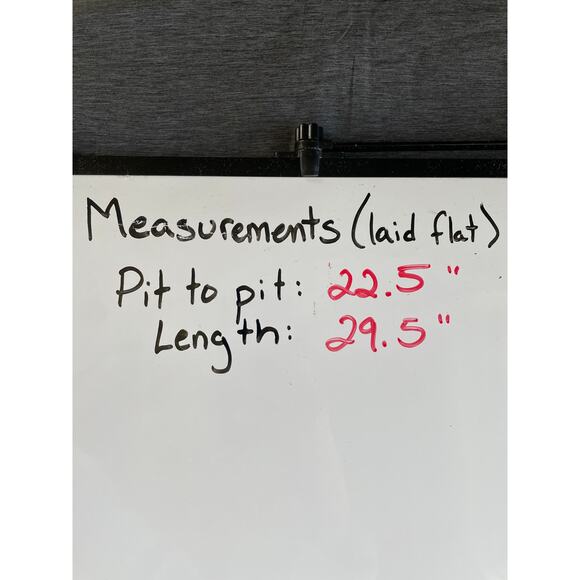 Measurements (laid flat)
Pit to pit: 22.5"
Length: 29.5"